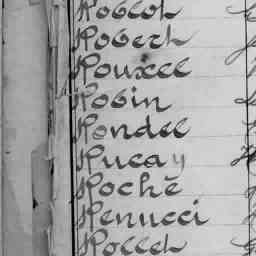 Roblot
Robert
Rouxel
Robin
Rondel
Rucay
Roché
Renucci
Rollet